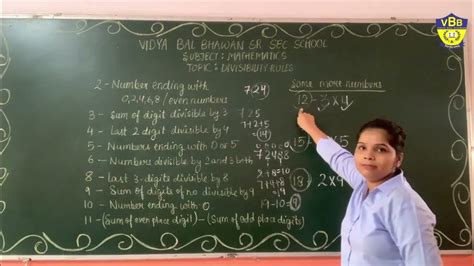 VBB
VIDYA BAL BHAWAN SR SEC SCHOOL
SUBJECT: MATHEMATICS
TOPIC: DIVISIBILITY RULES
2 - Number ending with
0,2,4,6,8 / even numbers
3 - Sum of digit divisible by 3
4 - Last 2 digit divisible by 4
5 - Numbers ending with 0 or 5
6 - Numbers divisible by 2 and 3 both
8 - Last 3-digits divisible by 8
9 - Sum of digits of no divisible by 9
10 - Number ending with 0
11 - (Sum of even place digit) - (Sum of odd place digits)
7124
725
72498
Some more numbers
12 - 3 x 4
15
18 2 x 9